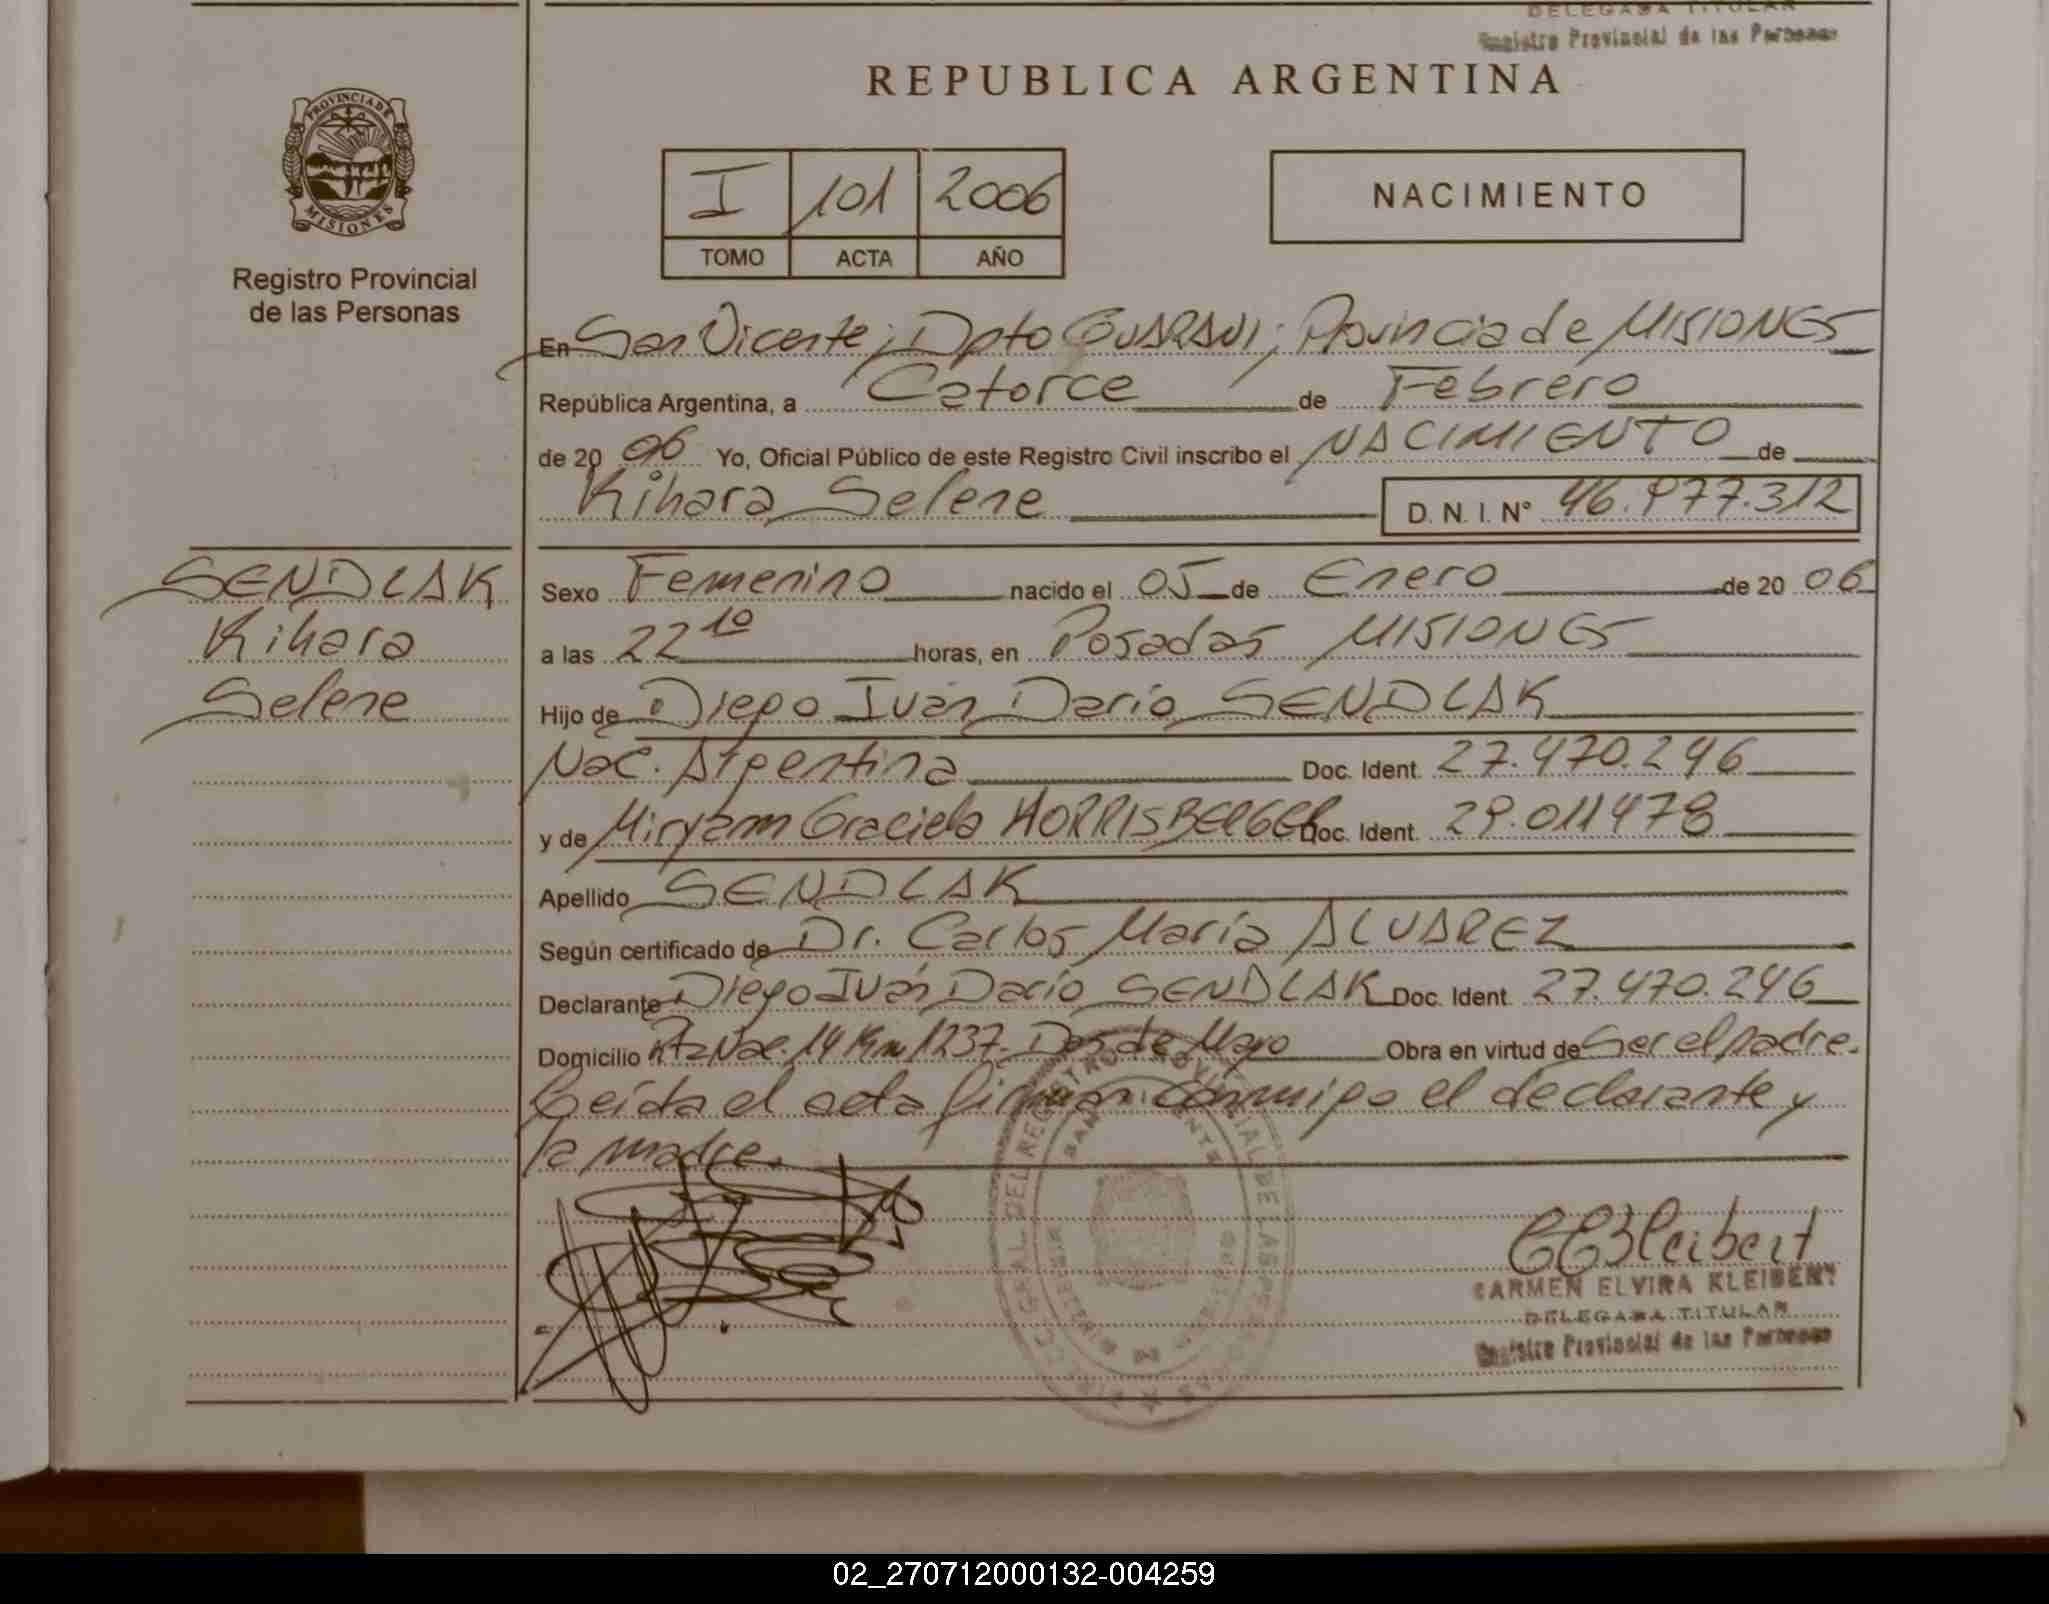 DELEGADA TITULAR
Registro Provincial de las Personas
REPUBLICA ARGENTINA
PROVINCIA DE
MISIONES
Registro Provincial
de las Personas
I 101 2006
TOMO ACTA AÑO
NACIMIENTO
En San Vicente; Dpto GUARANI; Provincia de MISIONES
República Argentina, a Catorce de Febrero
de 20 06 Yo, Oficial Público de este Registro Civil inscribo el NACIMIENTO de
Kihara Selene D. N. I. N° 46.977.312
SENDLAK
Kihara
Selene
Sexo Femenino nacido el 05 de Enero de 20 06
a las 22 10 horas, en Posadas MISIONES
Hijo de Diego Iván Darío SENDLAK
Nac. Argentina Doc. Ident. 27.470.246
y de Miryam Graciela HORRISBERGER Doc. Ident. 29.011478
Apellido SENDLAK
Según certificado de Dr. Carlos María ALVAREZ
Declarante Diego Iván Darío SENDLAK Doc. Ident. 27.470.246
Domicilio Rta Nac. 14 Km 1237- Dos de Mayo Obra en virtud de Ser el padre.
Leída el acta firman conmigo el declarante y
la madre.
DIRECC. GRAL. DEL REGISTRO PROVINCIAL DE LAS PERSONAS
SAN VICENTE
MISIONES
CEKleibert
CARMEN ELVIRA KLEIBERT
DELEGADA TITULAR
Registro Provincial de las Personas
02_270712000132-004259